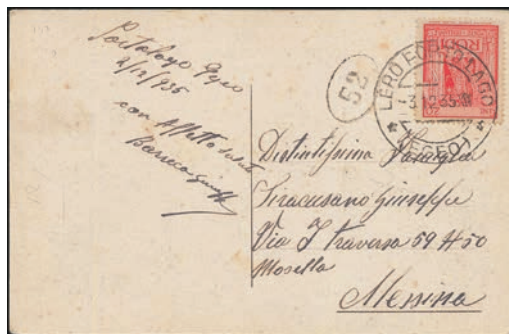 Portolago Egeo
2/12/935
con Affetto saluti
Barreca
52
LERO PORTOLAGO
(EGEO)
3.12.35
RODI
20
Distintissima Famiglia
Siracusano Giuseppe
Via I traversa 59 # 50
Mosella
Messina